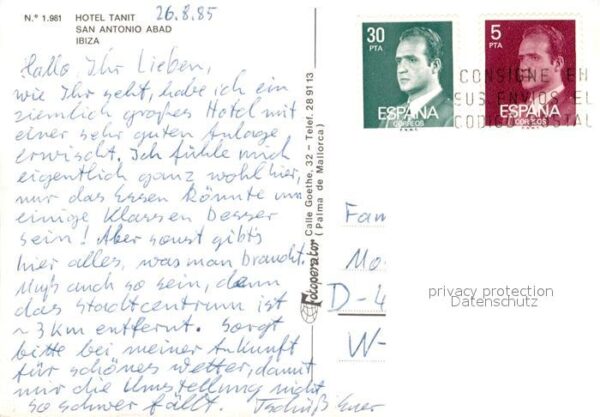 N.º 1.981 HOTEL TANIT
SAN ANTONIO ABAD
IBIZA
26.8.85
Hallo, Ihr Lieben,
wie Ihr seht, habe ich ein
ziemlich großes Hotel mit
einer sehr guten Anlage
erwischt. Ich fühle mich
eigentlich ganz wohl hier,
nur das Essen könnte um
einige Klassen besser
sein! Aber sonst gibt's
hier alles, was man braucht.
Muß auch so sein, denn
das Stadtcentrum ist
~ 3 km entfernt. Sorgt
bitte bei meiner Ankunft
für schönes Wetter, damit
mir die Umstellung nicht
so schwer fällt. Tschüß Euer
Fotoperator Calle Goethe, 32 - Telef. 28 91 13
(Palma de Mallorca)
30
PTA
ESPAÑA
CORREOS
5
PTA
ESPAÑA
CORREOS
CONSIGNE EN
SUS ENVIOS EL
CODIGO POSTAL
Fam
Mo
D-4
W-
privacy protection
Datenschutz